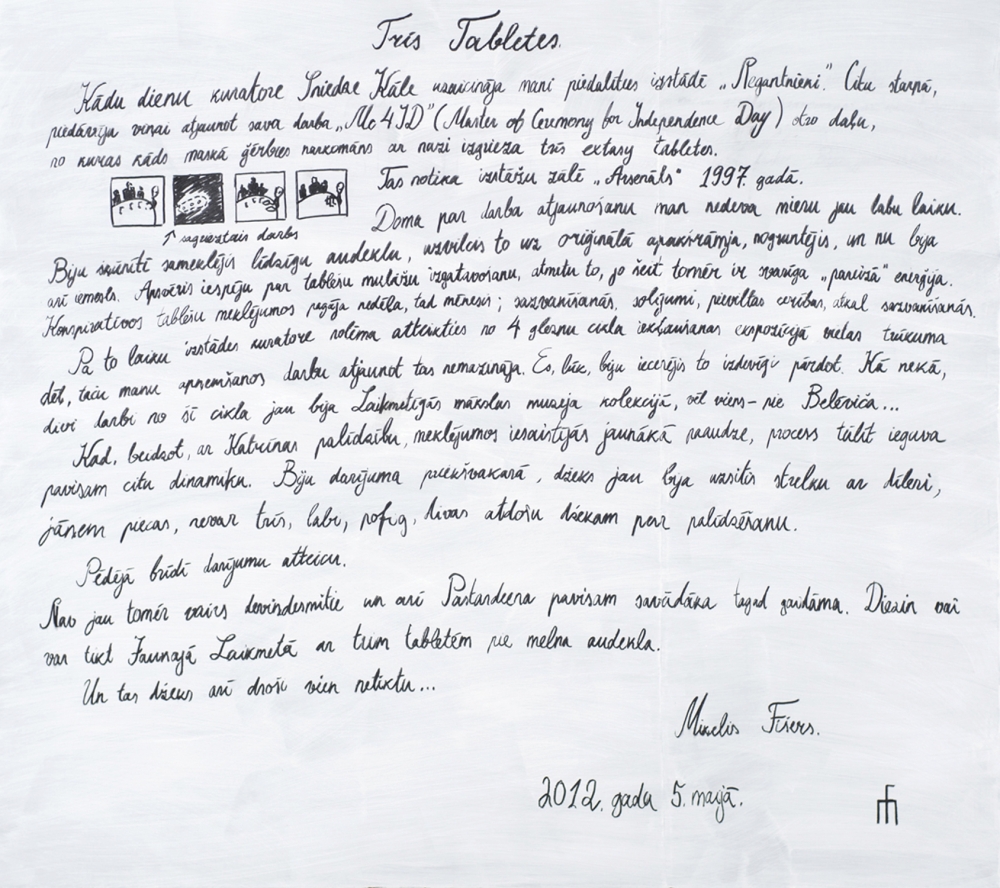 Trīs Tabletes.
Kādu dienu kuratore Sniedze Kāle uzaicināja mani piedalīties izstādē „Regantnieni." Citu starpā,
piedāvāja viņai atjaunot sava darba „Mc4ID" (Master of Ceremony for Independence Day) otro daļu,
no kuras kāds maskā ģērbies narkomāns ar nazi izgrieza trīs extasy tabletes.
Tas notika izstāžu zālē „Arsenāls" 1997. gadā.
Doma par darba atjaunošanu man nedeva mieru jau labu laiku.
↑ sagrieztais darbs
Biju sameklējis līdzīgu audeklu, uzvilcis to uz oriģinālā apakšrāmja, nogruntējis, un nu bija
arī iemesls. Apsvēris iespēju par tablešu mulāžu izgatavošanu, atmetu to, jo šeit tomēr ir svarīga „pareizā" enerģija.
Konspiratīvos tablešu meklējumos pagāja nedēļa, tad mēnesis; sazvanīšanās, solījumi, pieviltas cerības, atkal sazvanīšanās.
Pa to laiku izstādes kuratore nolēma atteikties no 4 gleznu cikla iekļaušanas ekspozīcijā vietas trūkuma
dēļ, taču manu apņemšanos darbu atjaunot tas nemazināja. Es, lūk, biju iecerējis to izdevīgi pārdot. Kā nekā,
divi darbi no šī cikla jau bija Laikmetīgās mākslas muzeja kolekcijā, vēl viens - pie Belēviča...
Kad, beidzot, ar Katrīnas palīdzību, meklējumos iesaistījās jaunākā paaudze, process tūlīt ieguva
pavisam citu dinamiku. Bija darījuma priekšvakarā, džeks jau bija uzsitis strelku ar dīleri,
jāņem piecas, nevar trīs, labi, pofig, divas atdošu džekam par palīdzēšanu.
Pēdējā brīdī darījumu atteicu.
Nav jau tomēr vairs deviņdesmitie un arī Pārtardeena pavisam savādāka tagad gaidāma. Diezin vai
var tikt Jaunajā Laikmetā ar trim tabletēm pie melna audekla.
Un tas džeks arī droši vien netiktu...
Miķelis Fišers.
2012. gada 5. maijā.